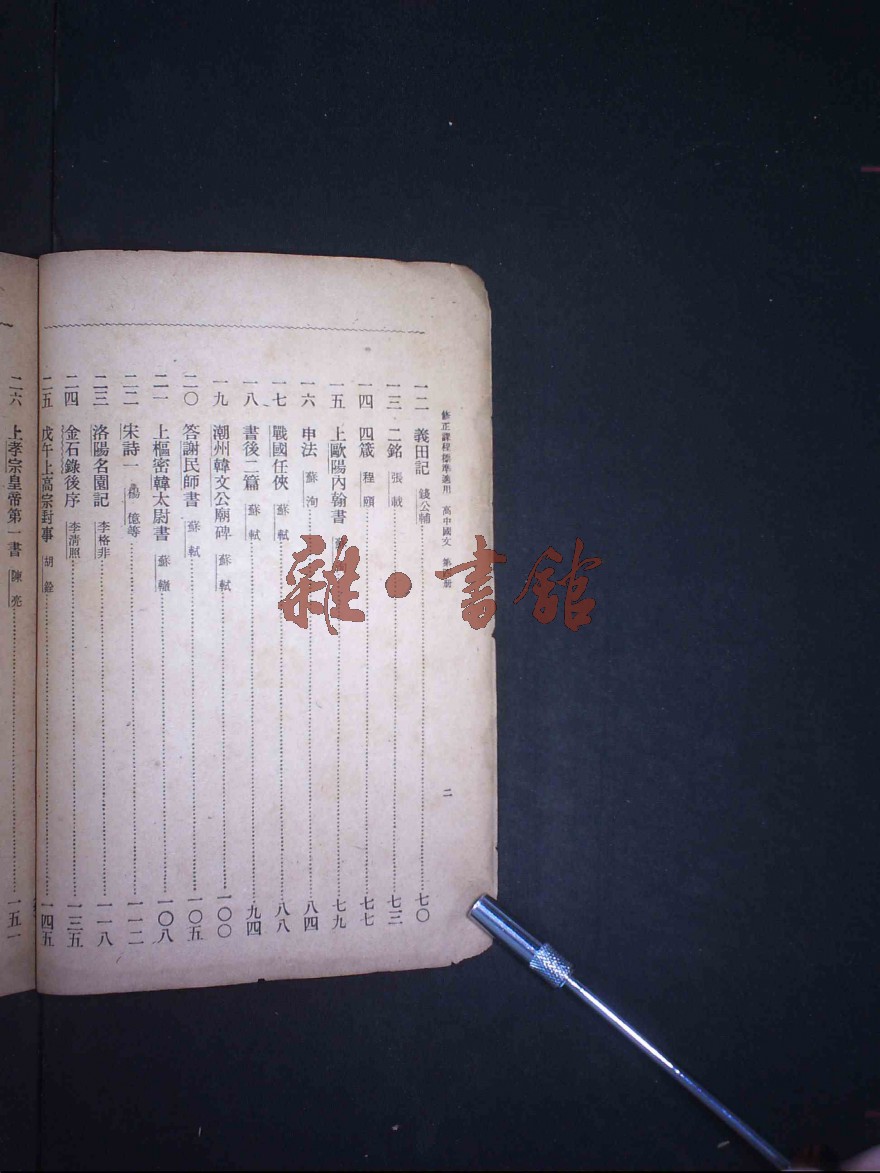 修正課程標準適用 高中國文 第 冊 二
一二 義田記 錢公輔 七〇
一三 二銘 張載 七三
一四 四箴 程頤 七七
一五 上歐陽內翰書 七九
一六 申法 蘇洵 八四
一七 戰國任俠 蘇軾 八八
一八 書後二篇 蘇軾 九四
一九 潮州韓文公廟碑 蘇軾 一〇〇
二〇 答謝民師書 蘇軾 一〇五
二一 上樞密韓太尉書 蘇轍 一〇八
二二 宋詩一 楊億等 一一二
二三 洛陽名園記 李格非 一一八
二四 金石錄後序 李清照 一三五
二五 戊午上高宗封事 胡銓 一四五
二六 上孝宗皇帝第一書 陳亮 一五一
雜·書館